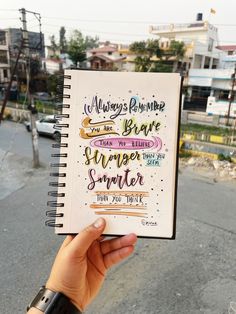 Always Remember
You are Brave
Than you believe
Stronger than you
seem
Smarter
than you think